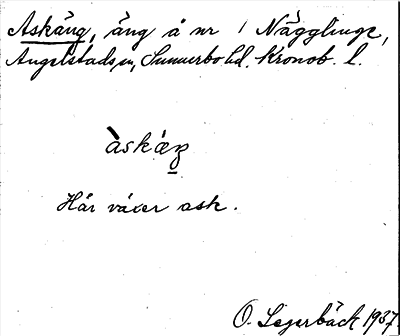 Askäng, äng å nr 1 Nägglinge,
Angelstads sn, Sunnerbo hd. Kronob. l.
àskæŋ
Här växer ask.
O. Segerbäck 1937